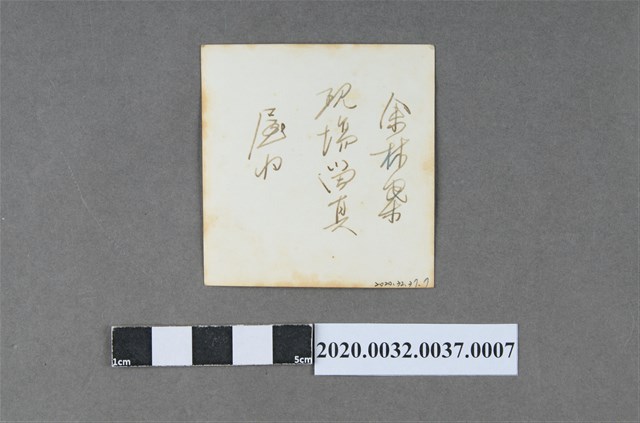 余林
現場寫真
屋内
2020.32.37.7
1cm
5cm
2020.0032.0037.0007